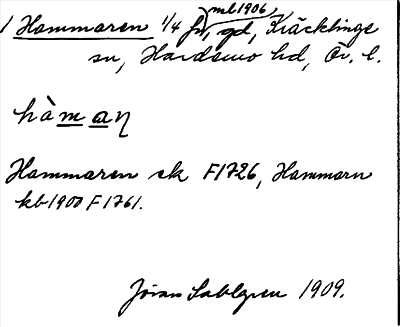 1 Hammaren 1/4 fr, ml 1906, gd, Kräcklinge
sn, Hardemo hd, Ör. l.
hàmaɳ
Hammaren sk F1726, Hammarn
kb 1900 F1761.
Jöran Sahlgren 1909.